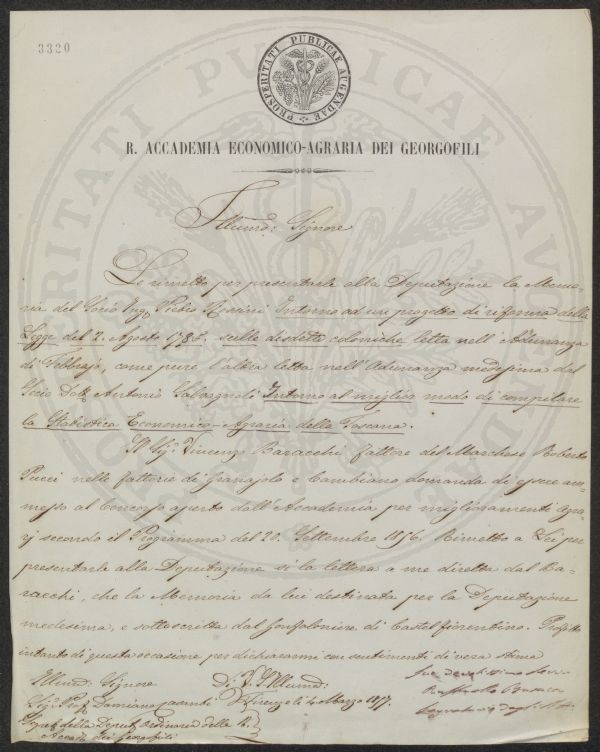 3320
PROSPERITATI PUBLICAE AUGENDAE
R. ACCADEMIA ECONOMICO-AGRARIA DEI GEORGOFILI
Illumo: Signore
Le rimetto per presentarle alla Deputazione la Memo-
ria del Socio Ingo Pietro Rosini Intorno ad un progetto di riforma della
Legge del 2. Agosto 178 sulle disdette coloniche letta nell'Adunanza
di Febbrajo, come pure l'altra letta nell'Adunanza medesima dal
Socio Dott. Antonio Salvagnoli Intorno al miglior modo di compilare
la Statistica Economico-Agraria della Toscana.
Il Sig: Vincenzo Baracchi fattore del Marchese Roberto
Pucci nelle fattorie di Granajolo e Cambiano domanda di essere am-
messo al Concorso aperto dall'Accademia per miglioramenti agra-
rj secondo il Programma del 20. Settembre 1856. Rimetto a Lei per
presentarle alla Deputazione sì la lettera a me diretta dal Ba-
racchi, che la Memoria da lui destinata per la Deputazione
medesima, e sottoscritta dal Gonfaloniere di Castelfiorentino. Profitto
intanto di questa occasione per dichiararmi con sentimenti di vera stima
Illumo: Signore
Di V. S. Illuma:
Sig: Prof. Damiano Casanti
Firenze li 4 Marzo 1857.
Segret. della Deput. Ordinaria della R.
Accad. dei Georgofili
Raffaello